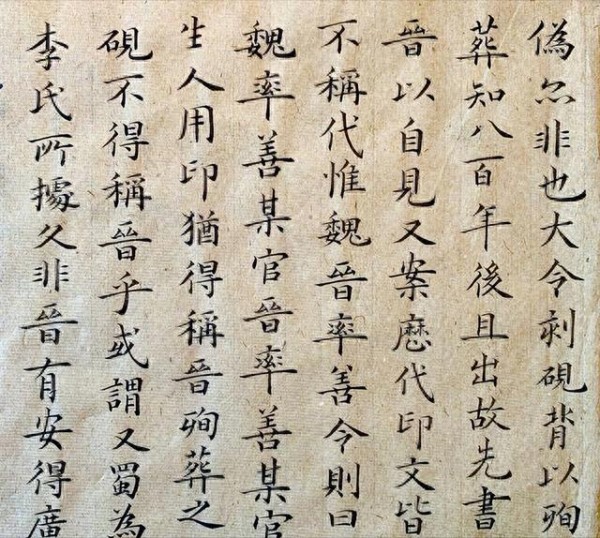 偽尔非也大令刻硯背以殉
葬知八百年後且出故先書
晉以自見又案歷代印文皆
不稱代惟魏晉率善令則曰
魏率善某官晉率善某官
生人用印猶得稱晉殉葬之
硯不得稱晉乎或謂又蜀為
李氏所據久非晉有安得廣